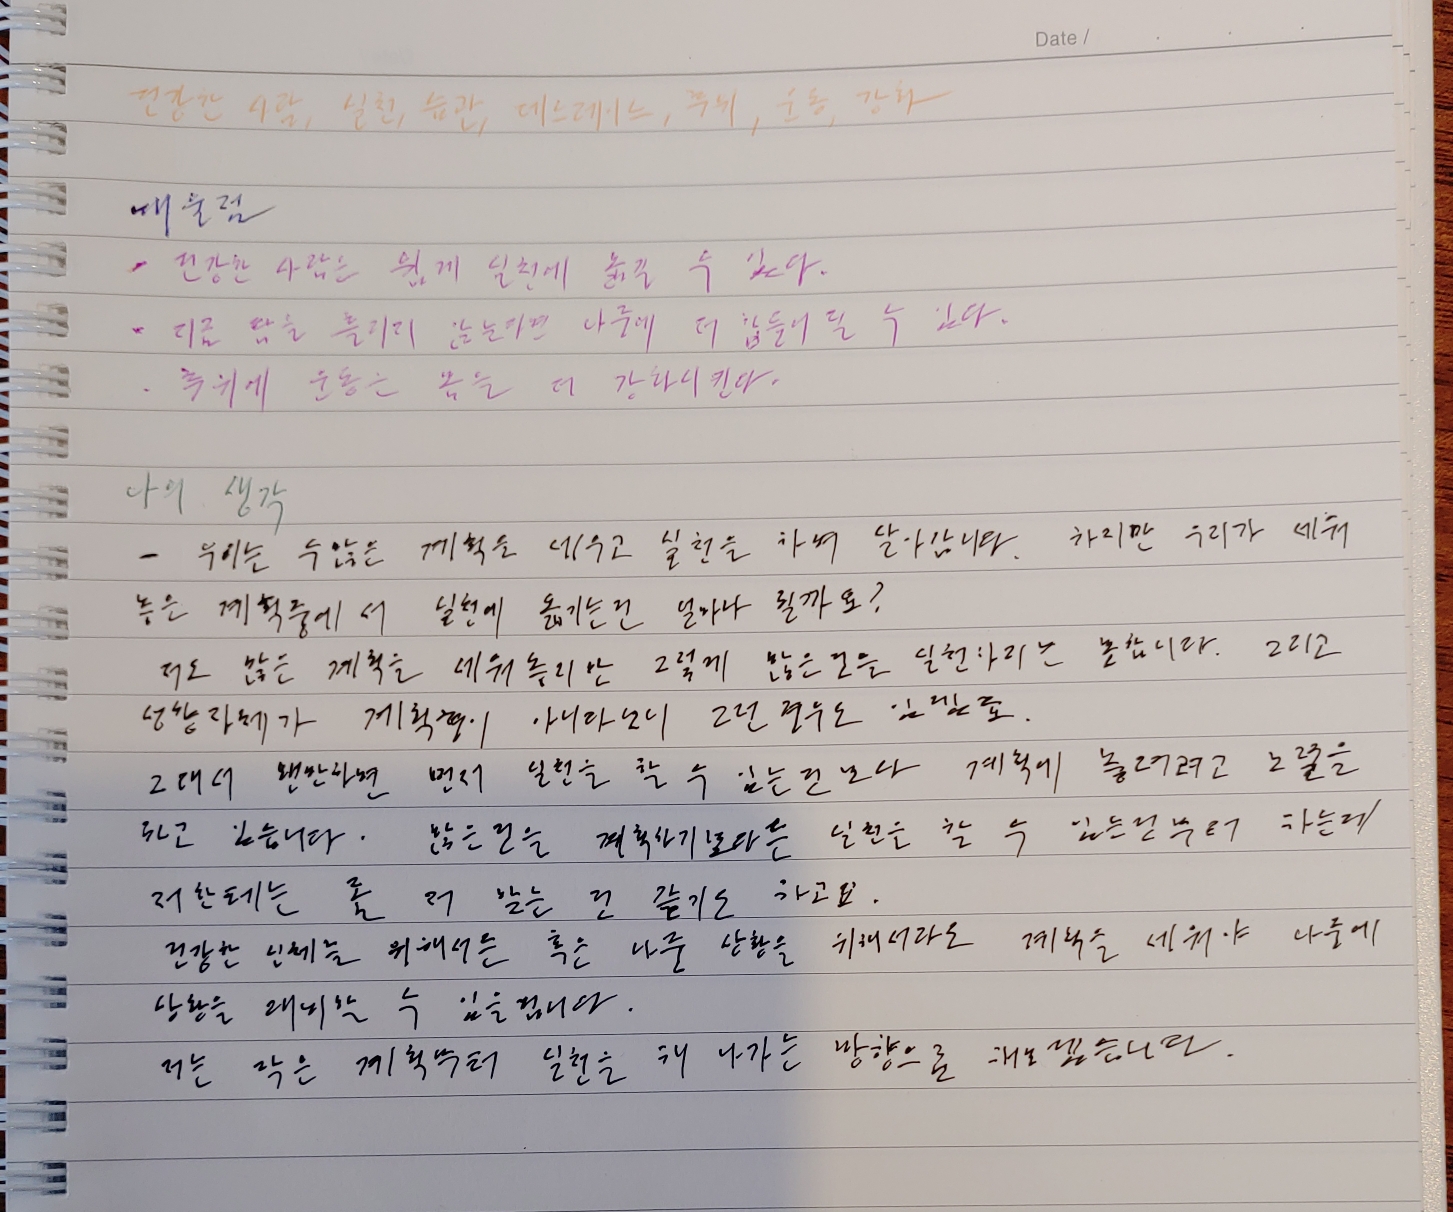 Date /
건강한 사람, 실천, 습관, 데스레이스, 추위, 운동, 강화
깨우침
• 건강한 사람은 쉽게 실천에 옮길 수 있다.
• 지금 땀을 흘리지 않는다면 나중에 더 힘들어 질 수 있다.
• 추위에 운동은 몸을 더 강화시킨다.
나의 생각
- 우리는 수많은 계획을 세우고 실천을 하며 살아갑니다. 하지만 우리가 세워
놓은 계획중에서 실천에 옮기는건 얼마나 될까요?
저도 많은 계획을 세워놓지만 그렇게 많은것을 실천하지는 못합니다. 그리고
성향자체가 계획형이 아니다보니 그런경우도 있답니다.
그래서 왠만하면 먼저 실천을 할 수 있는건보다 계획에 놓으려고 노력을
하고 있습니다. 많은것을 계획하기보다는 실천을 할 수 있는것부터 하는데
저한테는 좀 더 맞는 것 같기도 하고요.
건강한 신체를 위해서든 혹은 나중 상황을 위해서라도 계획을 세워야 나중에
상황을 대비할 수 있을겁니다.
저는 작은 계획부터 실천을 해 나가는 방향으로 해보겠습니다.